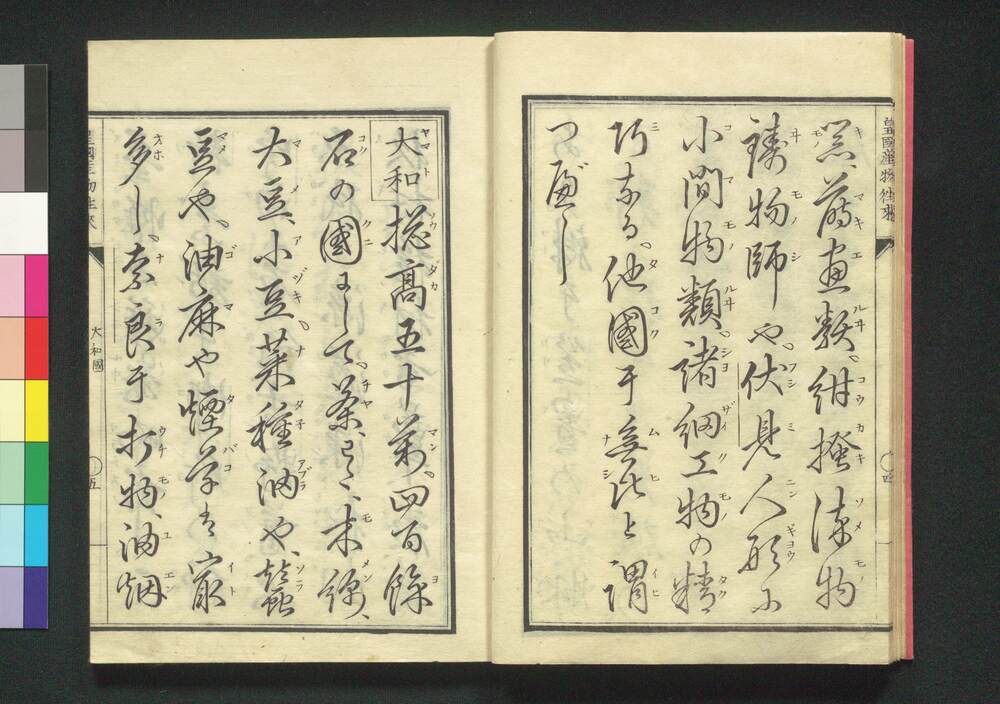 皇國産物往来
〇四
器、蒔画類、紺掻染物
鋳物師や、伏見人形に
小間物類、諸細工物の精
巧なる、他國于無比と謂
つ遍し
大和 総髙五十萬、四百餘
石の國にして、茶、わた、木綿、
大豆、小豆、菜種油や、蠶
豆や、油麻や煙草は最
多し、奈良于打物、油烟
皇國産物往来
大和國
〇五